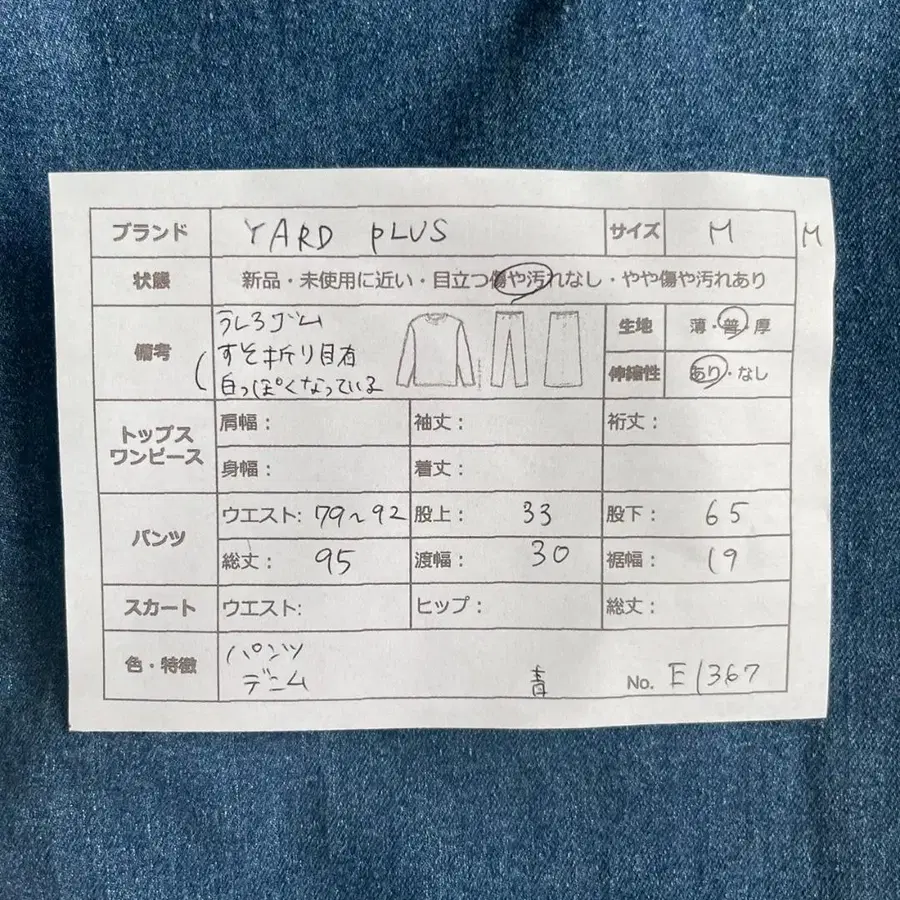 ブランド YARD PLUS サイズ M M
状態 新品・未使用に近い・目立つ傷や汚れなし・やや傷や汚れあり
備考 うしろゴム
すそ折り目有
白っぽくなっている
生地 薄・普・厚
伸縮性 あり・なし
トップス
ワンピース
肩幅: 袖丈: 裄丈:
身幅: 着丈:
パンツ
ウエスト: 79~92 股上: 33 股下: 65
総丈: 95 渡幅: 30 裾幅: 19
スカート ウエスト: ヒップ: 総丈:
色・特徴 パンツ
デニム 青 No. E1367